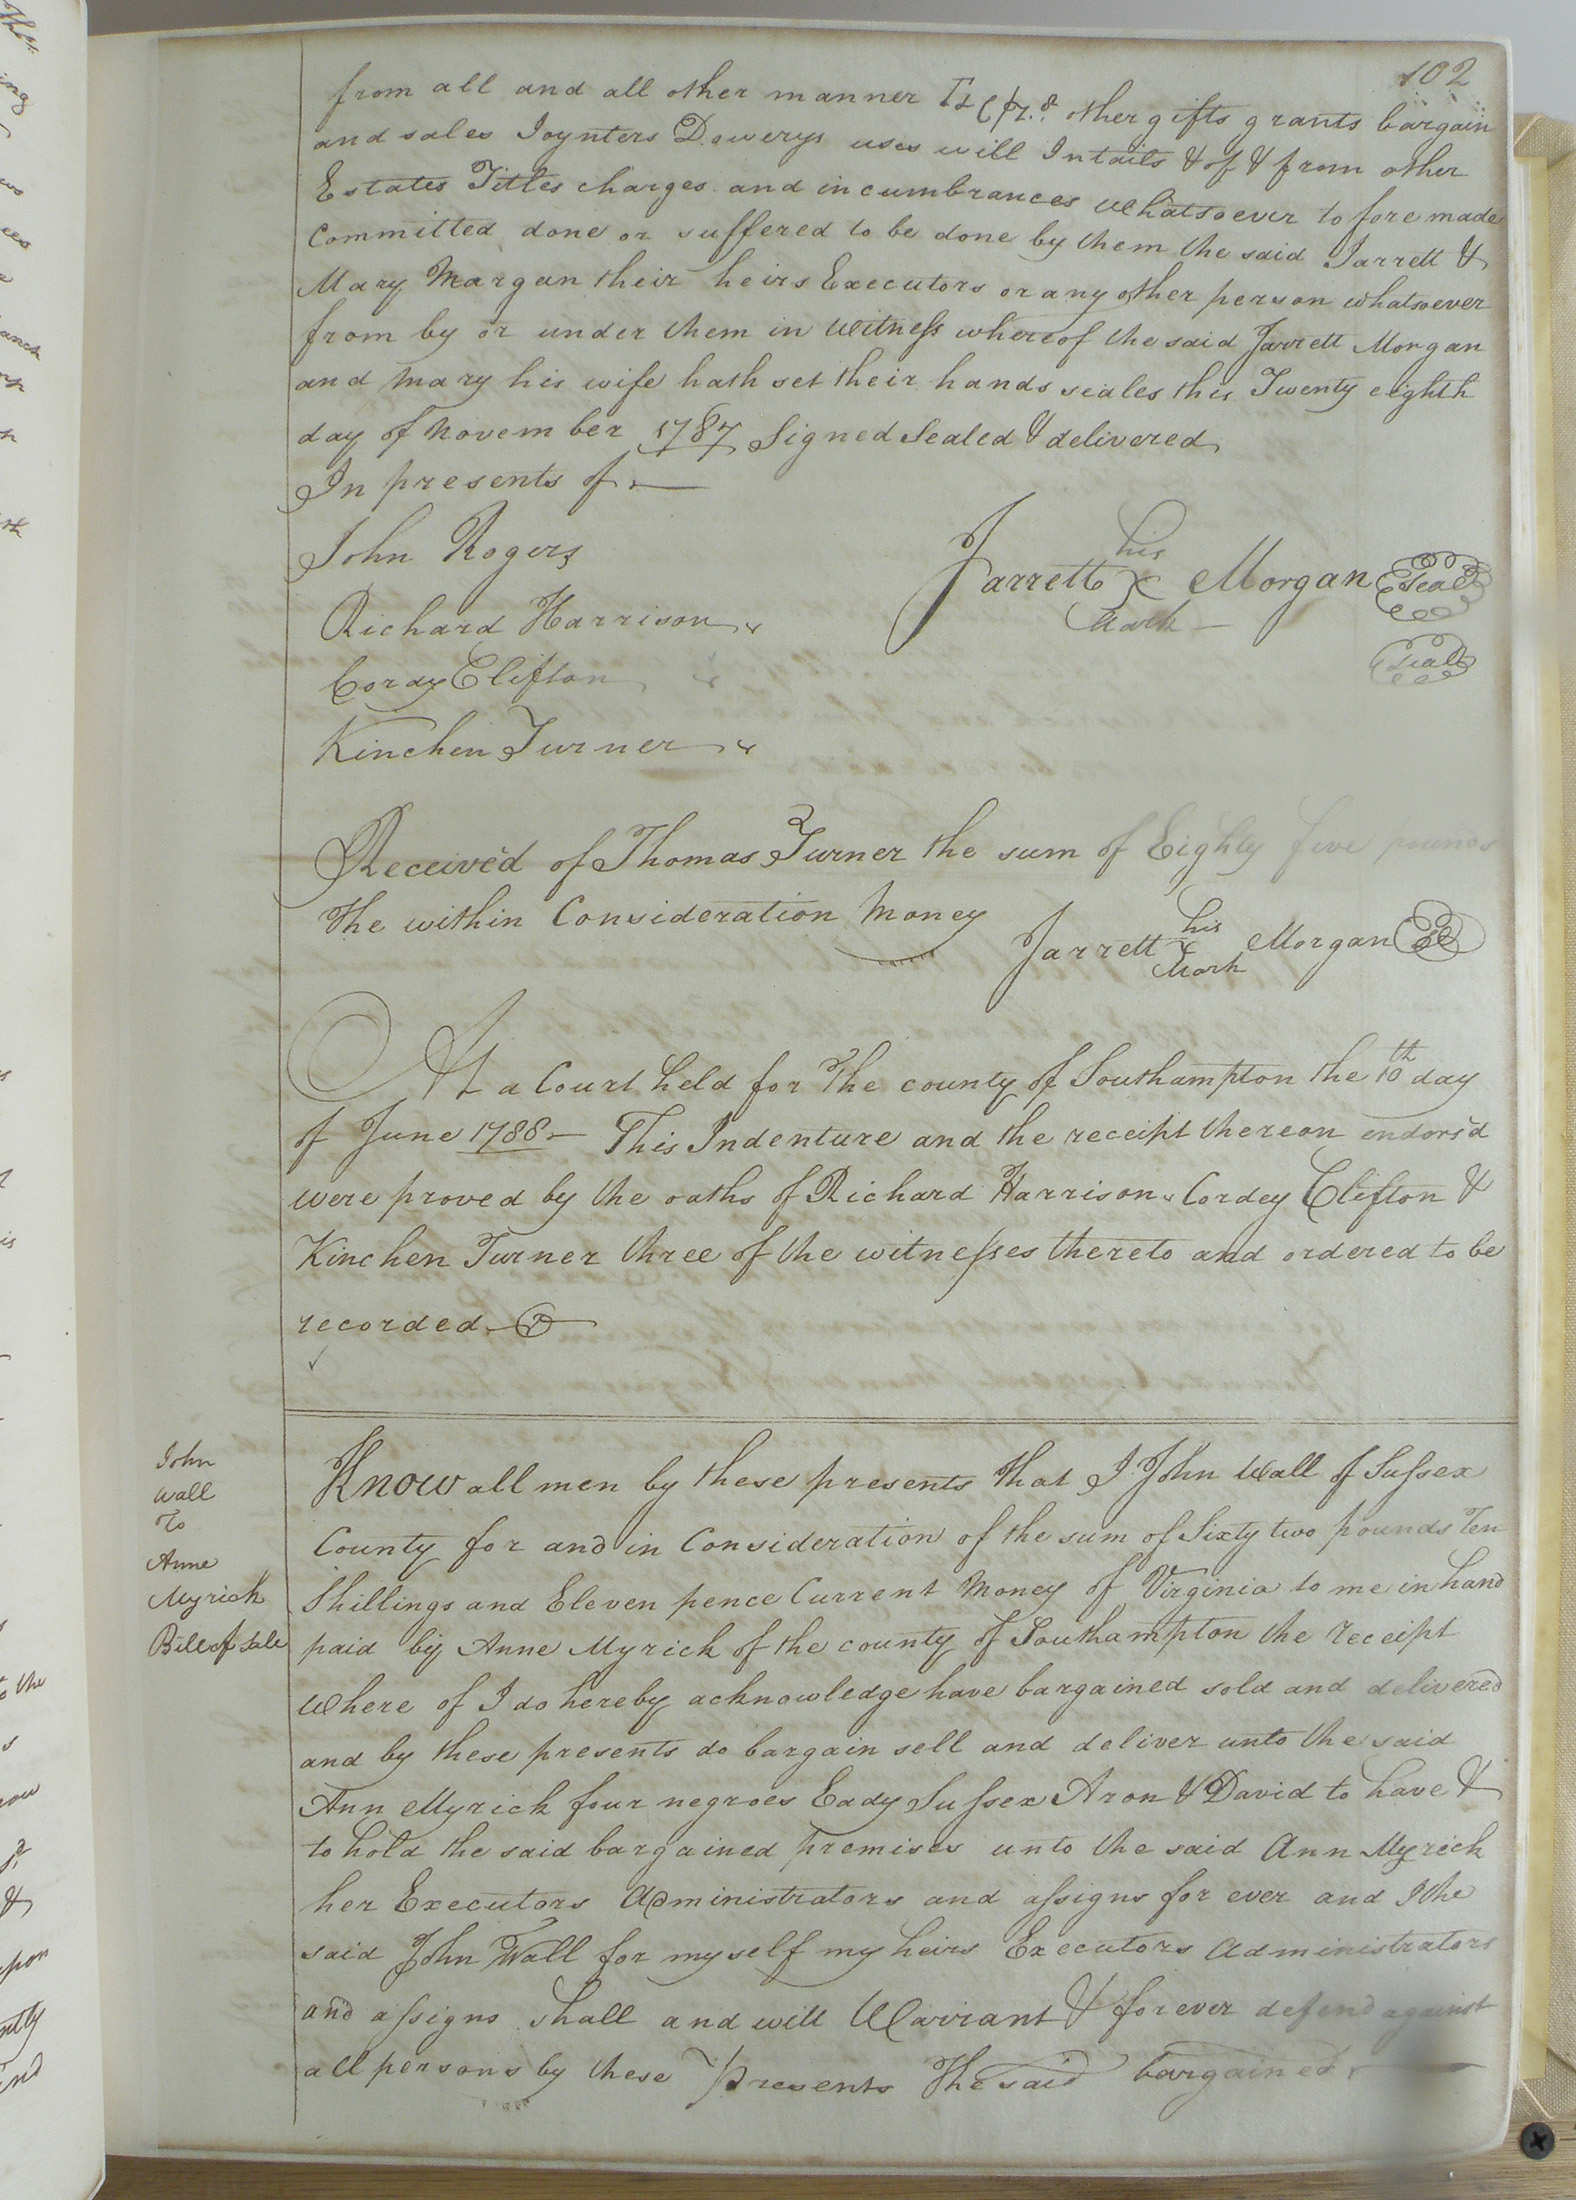 102
from all and all other manner other gifts grants bargain
and sales Joynters Dowerys uses will Intails & of & from other
Estates Titles charges and incumbrances whatsoever to fore made
Committed done or suffered to be done by them the said Jarrett &
Mary Morgan their heirs Executors or any other person whatsoever
from by or under them in witness whereof the said Jarrett Morgan
and Mary his wife hath set their hands seales this Twenty eighth
day of November 1787 Signed Sealed & delivered
In presents of
John Rogers
his
Jarrett X Morgan Seal
Mark
Richard Harrison
Seal
Cordy Clifton
Kinchen Turner
Received of Thomas Turner the sum of Eighty five pounds
the within Consideration Money
his
Jarrett X Morgan
Mark
At a Court held for the county of Southampton the 10th day
of June 1788 – This Indenture and the receipt thereon endors'd
were proved by the oaths of Richard Harrison Cordey Clifton &
Kinchen Turner three of the witnesses thereto and ordered to be
recorded
John
Wall
To
Anne
Myrick
Bill of Sale
Know all men by these presents that I John Wall of Sussex
County for and in Consideration of the sum of Sixty two pounds Ten
Shillings and Eleven pence Current Money of Virginia to me in hand
paid by Anne Myrick of the county of Southampton the receipt
Where of I do hereby acknowledge have bargained sold and delivered
and by these presents do bargain sell and deliver unto the said
Ann Myrick four negroes Eady Sussex Aron & David to have &
to hold the said bargained premises unto the said Ann Myrick
her Executors Administrators and assigns for ever and I the
said John Wall for myself my heirs Executors Administrators
and assigns shall and will Warrant & forever defend against
all persons by these presents The said bargained